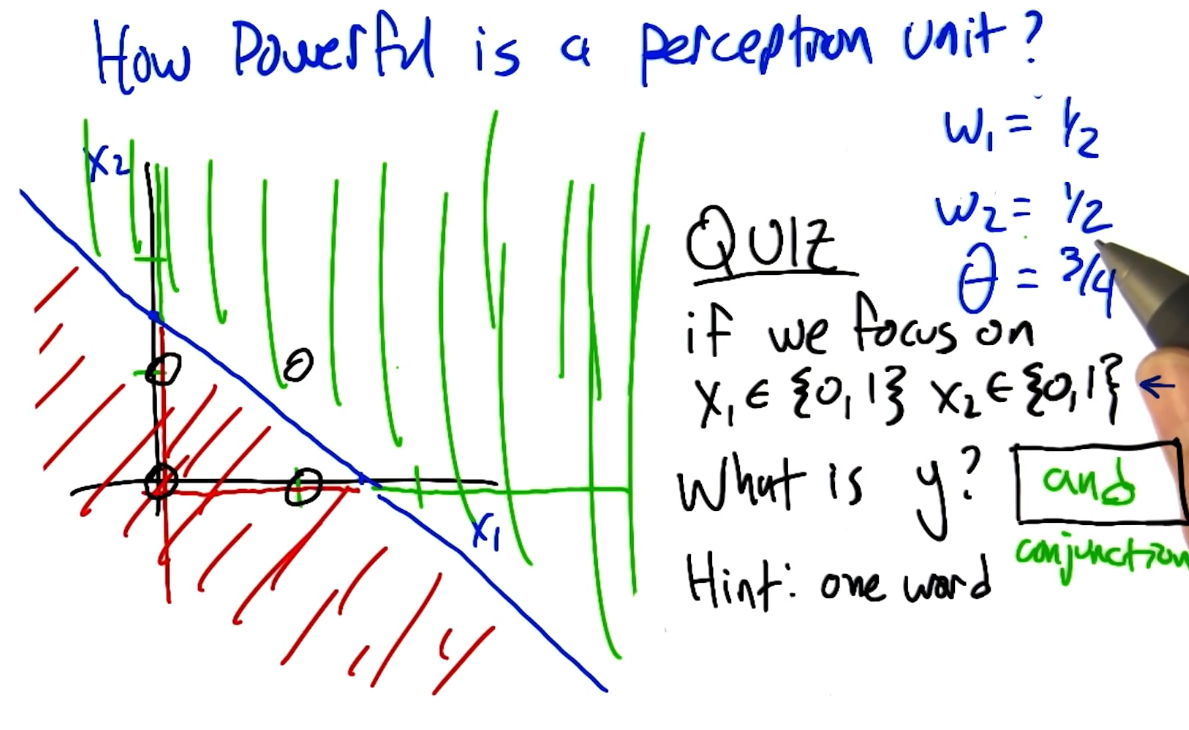 How Powerful is a perceptron unit?
X2
X1
W1 = 1/2
W2 = 1/2
θ = 3/4
QUIZ
if we focus on
X1 ∈ {0,1} X2 ∈ {0,1} ←
What is y? and
conjunction
Hint: one word